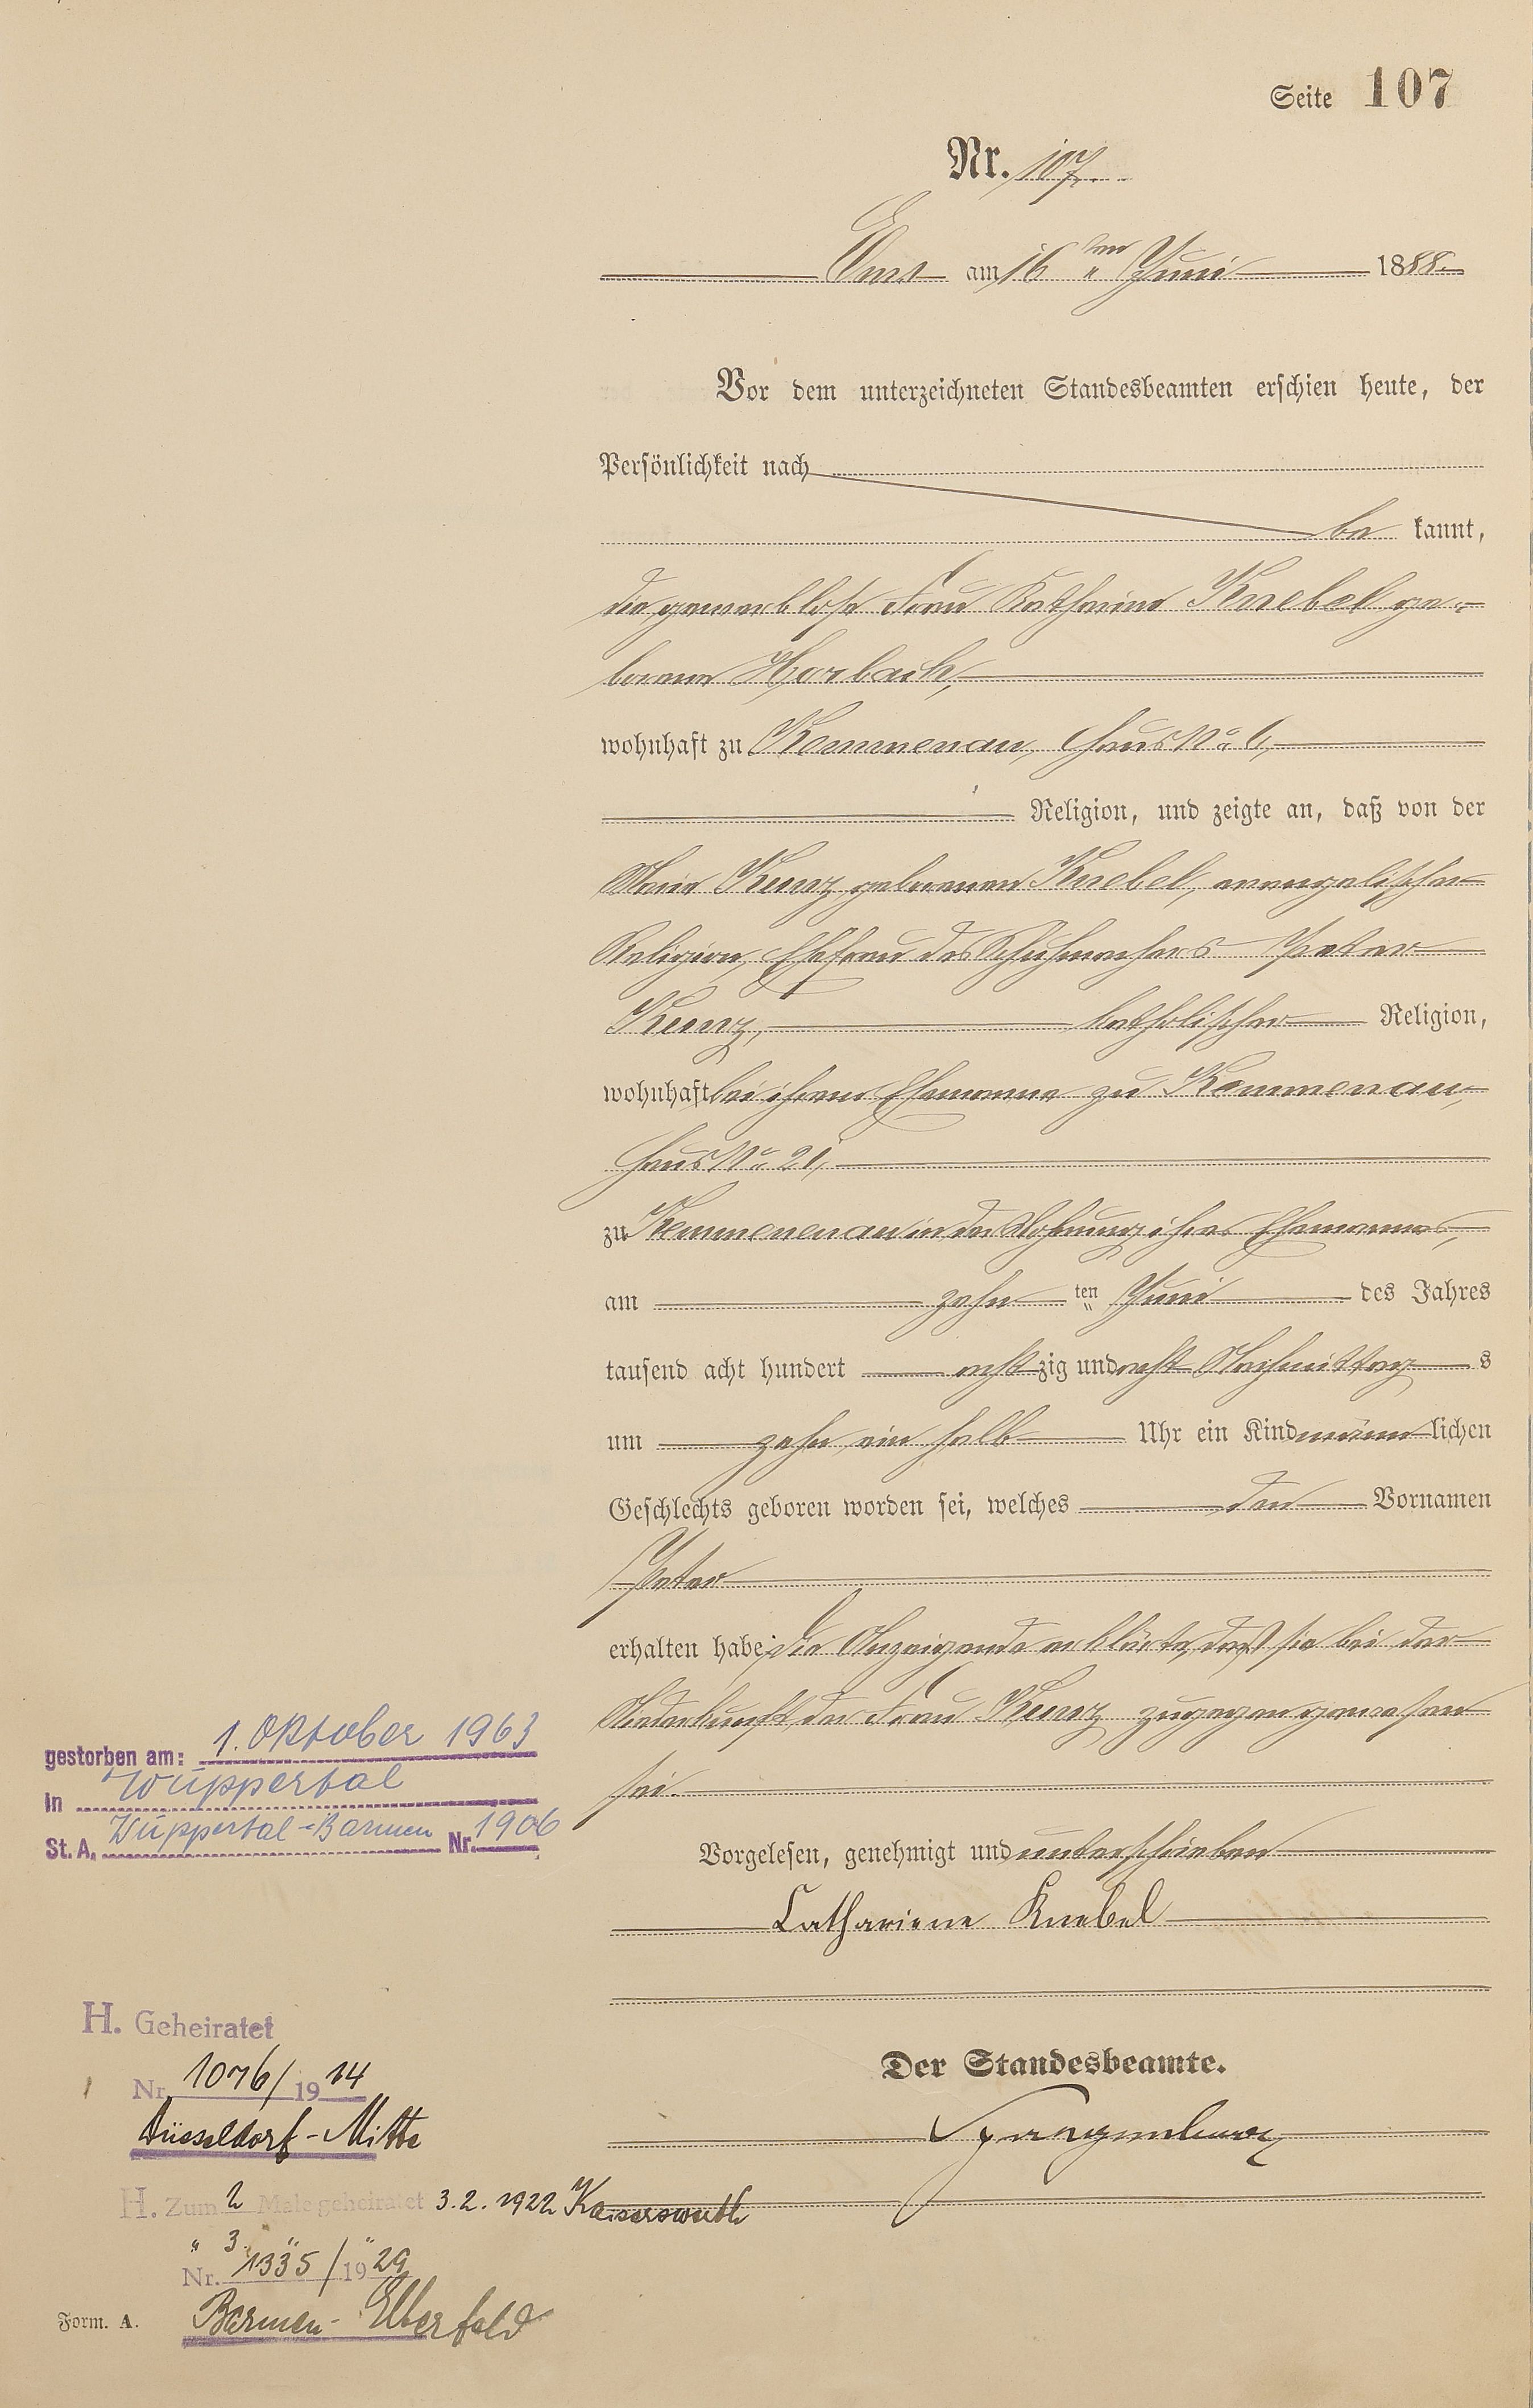 Seite 107
Nr. 107.
Ems am 16ten Juni 1888.
Vor dem unterzeichneten Standesbeamten erschien heute, der
Persönlichkeit nach
be kannt,
die gewerblose Frau Katharine Knebel ge-
borene Horbach,
wohnhaft zu Kemmenau, Haus No. 6,
Religion, und zeigte an, daß von der
Marie Kunz geborenen Knebel, evangelischer
Religion, Ehefrau des Schuhmachers Peter
Kunz, katholischer Religion,
wohnhaft bei ihrem Ehemanne zu Kemmenau,
Haus No. 21,
zu Kemmenenau in der Wohnung ihres Ehemannes,
am zehn ten Juni des Jahres
tausend acht hundert acht zig und acht Nachmittag s
um zehn ein halb Uhr ein Kind männ lichen
Geschlechts geboren worden sei, welches den Vornamen
Peter
erhalten habe. Die Anzeigende erklärte, daß sie bei der
Niederkunft der Frau Kunz zugegen gewesen
sei.
Vorgelesen, genehmigt und unterschrieben
Cathariene Knebel
Der Standesbeamte.
Spangenberg
gestorben am: 1. Oktober 1963
in Wuppertal
St. A. Wuppertal-Barmen Nr. 1906
H. Geheiratet
Nr. 1076/1914
Düsseldorf-Mitte
H. Zum 2 Male geheiratet 3.2.1922 Kaiserswerth
" 3. " "
Nr. 1335/1929
Barmen-Elberfeld
Form. A.